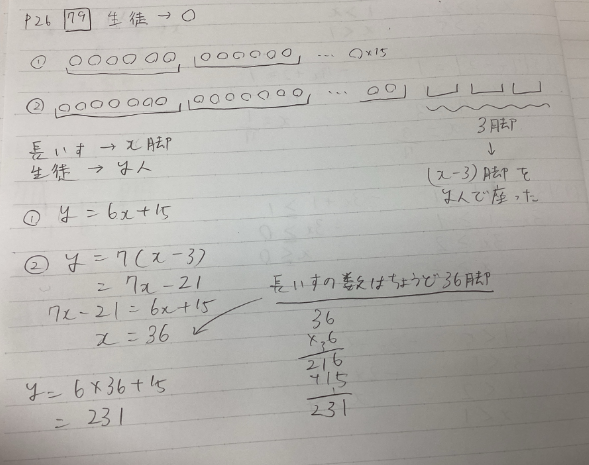 P26 79 生徒 → ○
① ○○○○○○ ○○○○○○ … ○×15
② ○○○○○○○ ○○○○○○○ … ○○
3脚
↓
(x-3)脚を
y人で座った
長いす → x脚
生徒 → y人
① y = 6x+15
② y = 7(x-3)
= 7x-21
7x-21=6x+15
x = 36
長いすの数はちょうど36脚
y= 6×36+15
= 231
36
× 6
216
+15
231